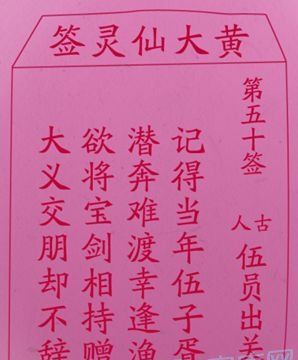 黄大仙灵签
第五十签
古人 伍员出关
记得当年伍子胥
潜奔难渡幸逢渔
欲将宝剑相持赠
大义交朋却不辞